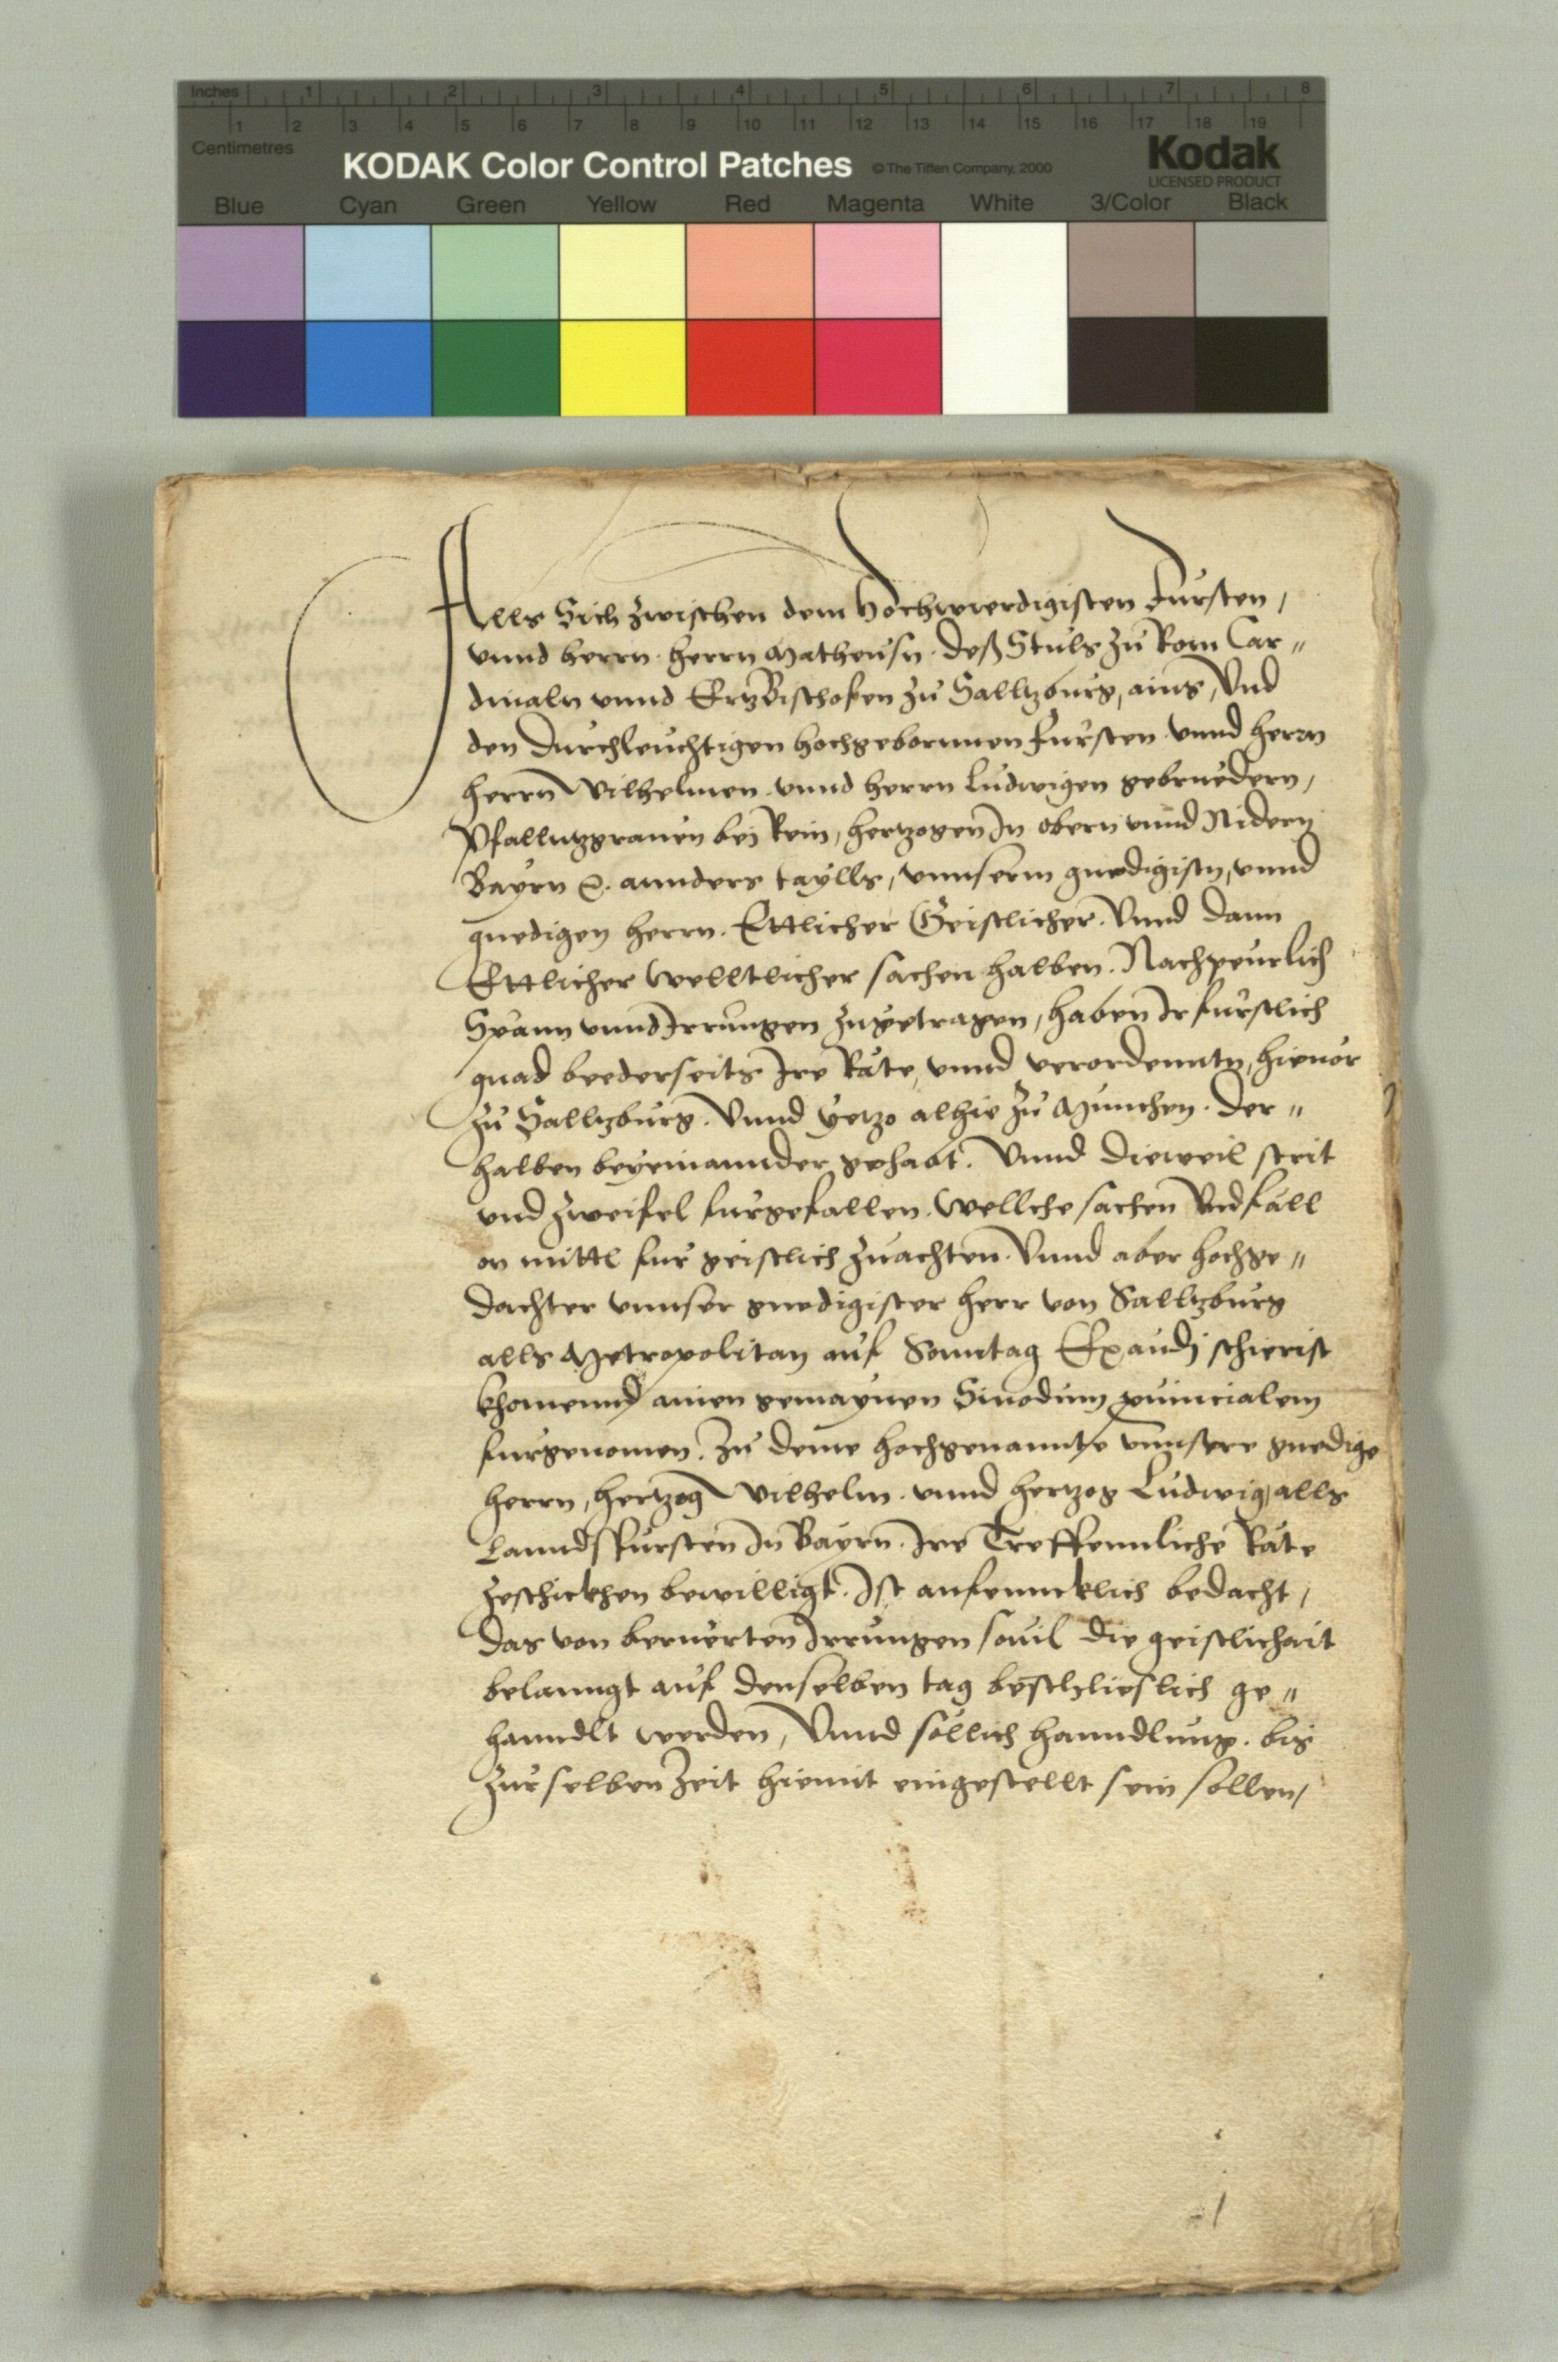 Inches 1 2 3 4 5 6 7 8
1 2 3 4 5 6 7 8 9 10 11 12 13 14 15 16 17 18 19
Centimetres
KODAK Color Control Patches © The Tiffen Company, 2000 Kodak
LICENSED PRODUCT
Blue Cyan Green Yellow Red Magenta White 3/Color Black
Alls Sich zwischen dem Hochwierdigisten Fürsten,
vnnd herrn herrn Matheusn deß Stuls zu Rom Car„
dinaln vnnd ErtzBischofen zu Salltzburg, ains, Vnd
den Durchleuchtigen hochgebornnen Fürsten vnnd herrn
herrn Wilhelmen vnnd herrn Ludwigen gebruedern,
Pfalltzgrauen bei Rein, hertzogen In obern vnnd Nidern
Bayrn ꝛc. annders taylls, vnnserm gnedigistn, vnnd
gnedigen herrn. Ettlicher Geistlicher. Vnnd dann
Ettlicher welltlicher sachen halben. Nachpeurlich
Spänn vnnd Irrungen zugetragen, haben Ir fürstlich
gnad beederseits Ire Räte, vnnd verordenntn, hieuor
zu Salltzburg. Vnnd yetzo alhie zu München. Der„
halben beyeinannder gehabt. Vnnd dieweil strit
vnd zweifel fürgefallen. Wellche sachen Vnd fäll
on mittl für geistlich zuachten. Vnnd aber hochge„
dachter vnnser gnedigister herr von Salltzburg
alls Metropolitan auf Sonntag Exaudj schierist
khomennd ainen gemaynen Sinodum prouincialem
fürgenomen. Zu deme hochgenannte vnnsere gnedige
herrn, hertzog Wilhelm. vnnd hertzog Ludwig, alls
Lanndsfürsten In Bayrn. Ire Treffennliche Räte
zeschickhen bewilligt. Ist anfenncklich bedacht,
das von beruerten Irrungen souil die geistlichait
belanngt auf denselben tag beschlieslich ge„
hanndlt werden, Vnnd söllich hanndlung. bis
zur selben Zeit hiemit eingestellt sein sollen,
1